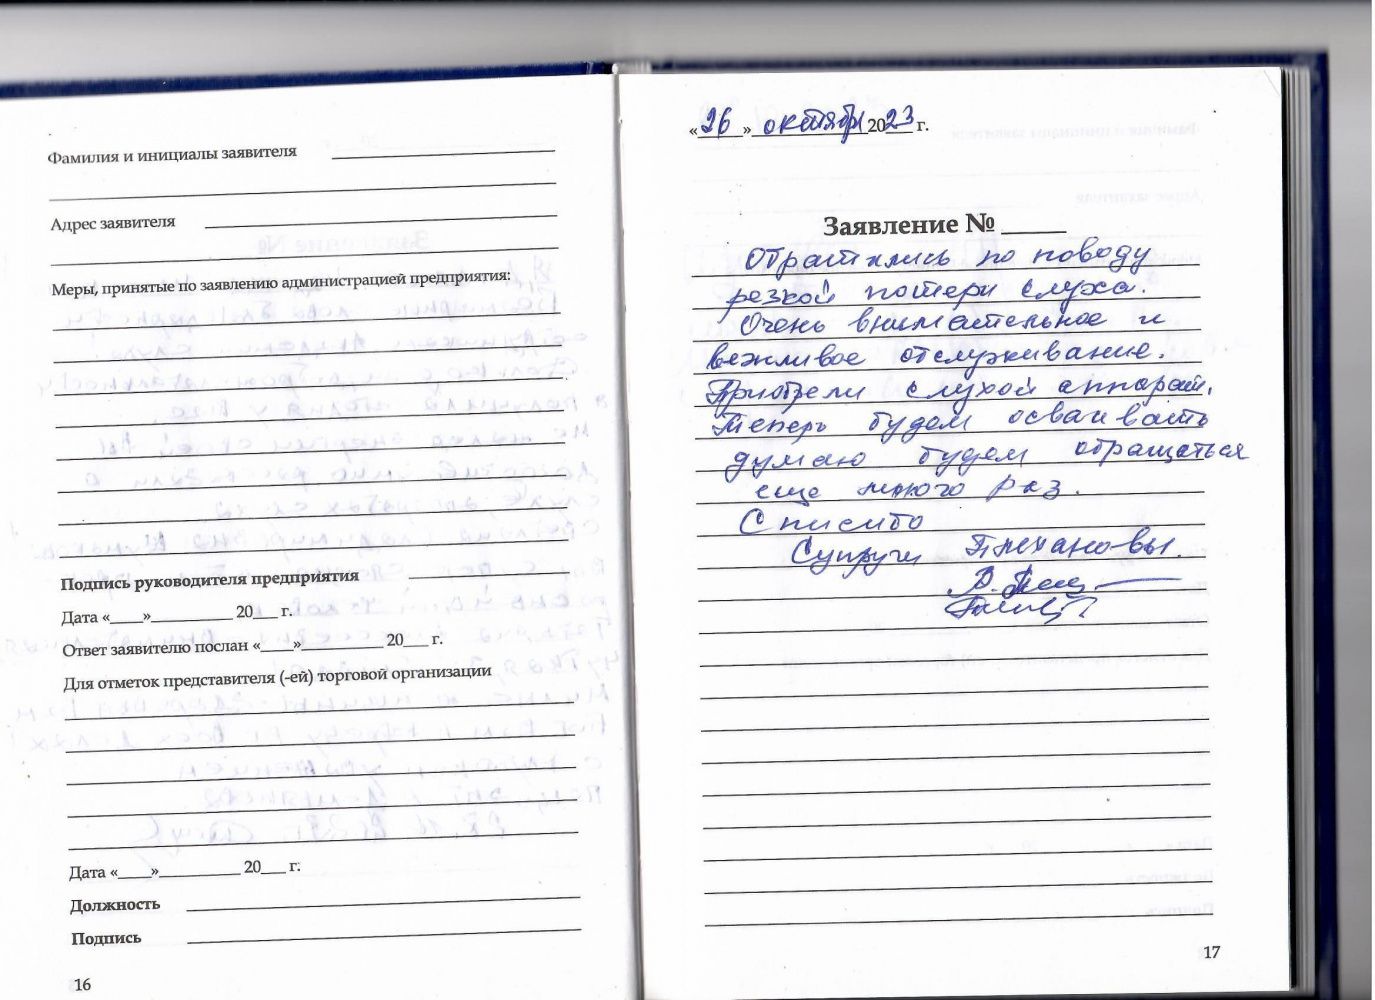 Фамилия и инициалы заявителя
Адрес заявителя
Меры, принятые по заявлению администрацией предприятия:
Подпись руководителя предприятия
Дата «____»__________ 20___ г.
Ответ заявителю послан «____»__________ 20___ г.
Для отметок представителя (-ей) торговой организации
Дата «____»__________ 20___ г.
Должность
Подпись
16
«26» октября 2023 г.
Заявление № _____
Обратились по поводу
резкой потери слуха.
Очень внимательное и
вежливое отслуживание.
Приобрели слухой аппарат.
Теперь будем осваивать
думаю будем обращаться
еще много раз.
Спасибо
Супруги Плехановы.
17